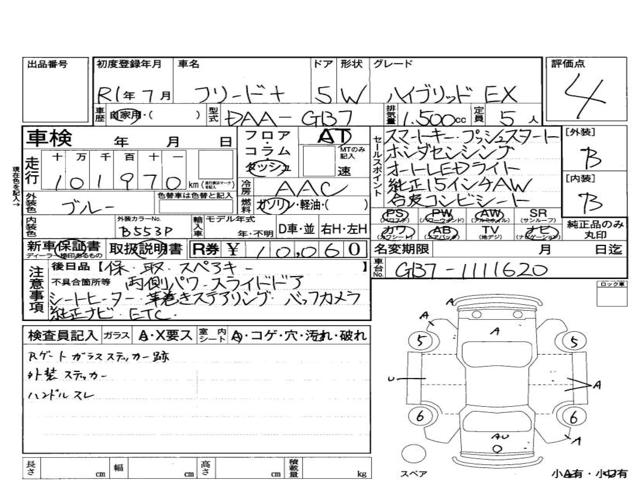 出品番号 初度登録年月 車名 ドア 形状 グレード 評価点
R1年7月 フリード+ 5 W ハイブリッド EX 4
車歴 自家用・( ) 型式 DAA-GB7 排気量 1,500cc 定員 5人
車検 年 月 日 フロア・コラム・ダッシュ AT MTのみ記入 速
走行 十万 万 千 百 十 101970 km
冷房 AAC
外装色 ブルー 色替車は色替前の色
ガソリン・軽油・( )
内装色 外装カラーNo. B553P 輸入車 モデル年式 年・不明 D車・並 右H・左H
新車保証書 取扱説明書 R券 ¥10,060
ディーラー捺印あるもの
セールスポイント
スマートキー・プッシュスタート
ホンダセンシング
オートLEDライト
純正15インチAW
合皮コンビシート
[外装] B
[内装] B
PS PW AW SR (サンルーフ)
カワ AB TV ナビ
(地デジ)
純正品のみ丸印
名変期限 月 日迄
車台No. GB7-1111620
現在色を記入→
注意事項
後日品【保、取、スペアキー
不具合箇所等 両側パワースライドドア
シートヒーター 革巻きステアリング バックカメラ
純正ナビ ETC
ロック車
検査員記入 ガラス A・X要ス 室内シート A・コゲ・穴・汚れ・破れ
Rゲートガラスステッカー跡
外装ステッカー
ハンドルスレ
A A
5 5
U A
6 6
A AU A
スペア 小A有・小U有
長さ cm 幅 cm 高さ cm 積載量 kg